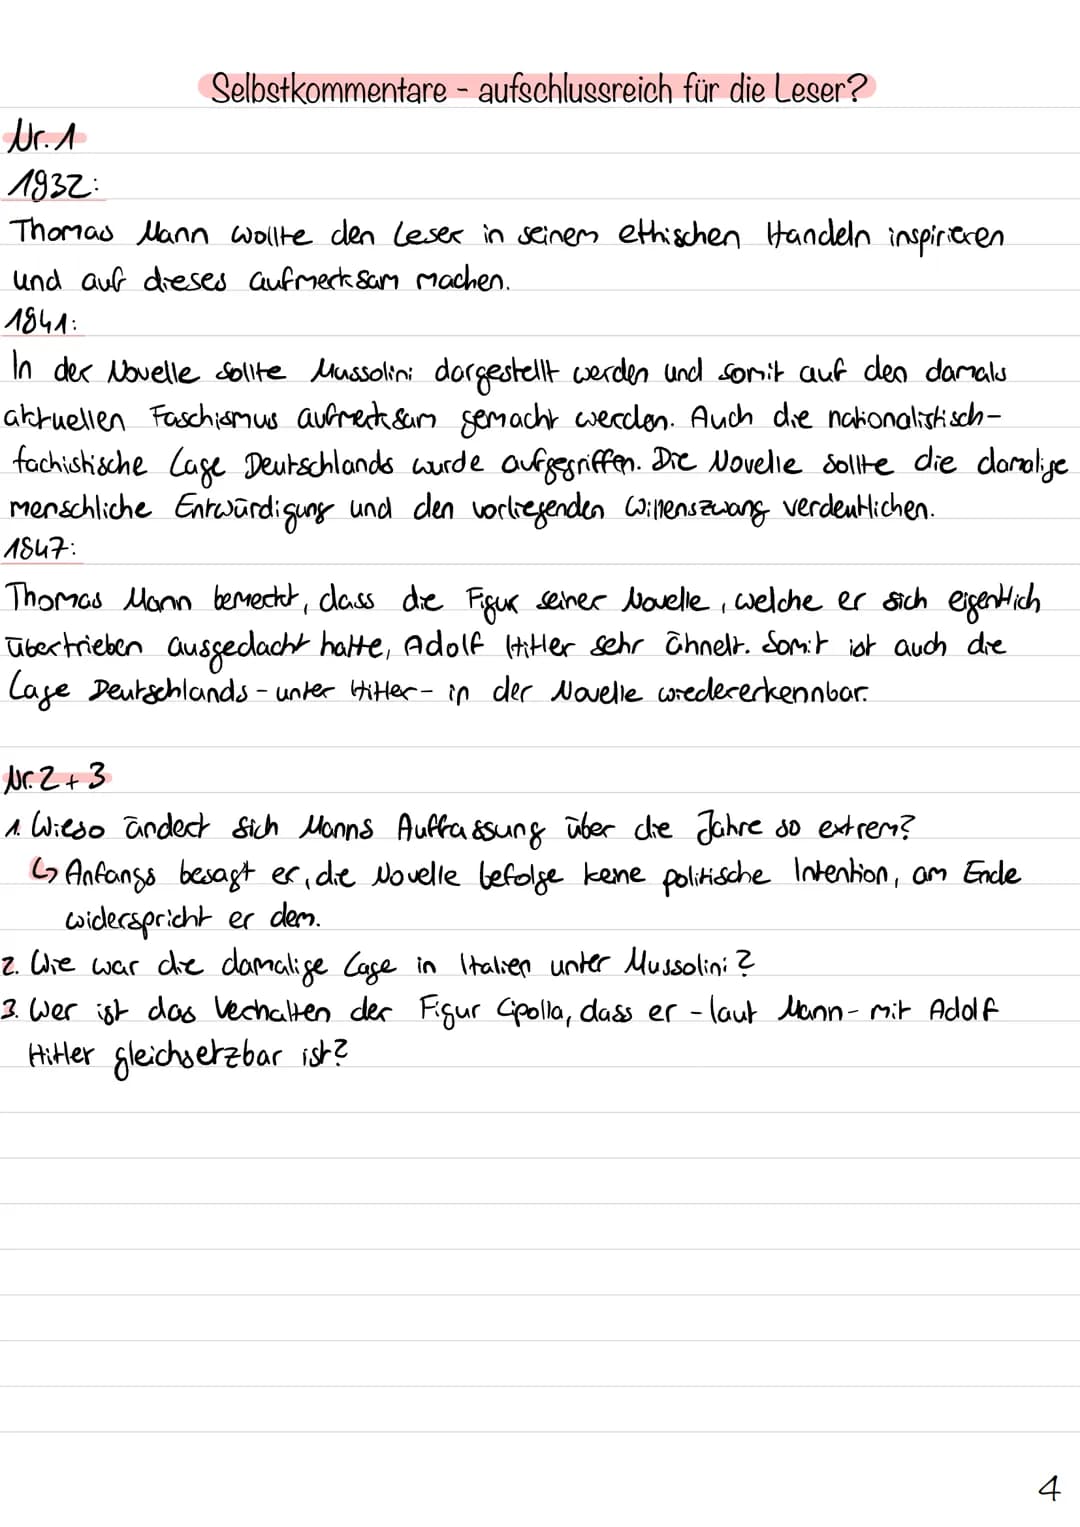 Selbstkommentare - aufschlussreich für die Leser?
Nr. 1
1932:
Thomas Mann wollte den Leser in seinem ethischen Handeln inspirieren
und auf dieses aufmerksam machen.
1841:
In der Novelle sollte Mussolini dargestellt werden und somit auf den damals
aktuellen Faschismus aufmerksam gemacht werden. Auch die nationalistisch-
fachistische Lage Deutschlands wurde aufgegriffen. Die Novelle sollte die damalige
menschliche Entwürdigung und den vorliegenden Willenszwang verdeutlichen.
1847:
Thomas Mann bemerkt, dass die Figur seiner Novelle, welche er sich eigentlich
übertrieben ausgedacht hatte, Adolf Hitler sehr ähnelt. Somit ist auch die
Lage Deutschlands - unter Hitler - in der Novelle wiedererkennbar.
Nr. 2 + 3
1. Wieso ändert sich Manns Auffassung über die Jahre so extrem?
↳ Anfangs besagt er, die Novelle befolge keine politische Intention, am Ende
widerspricht er dem.
2. Wie war die damalige Lage in Italien unter Mussolini?
3. Wer ist das Verhalten der Figur Cipolla, dass er - laut Mann - mit Adolf
Hitler gleichsetzbar ist?
4